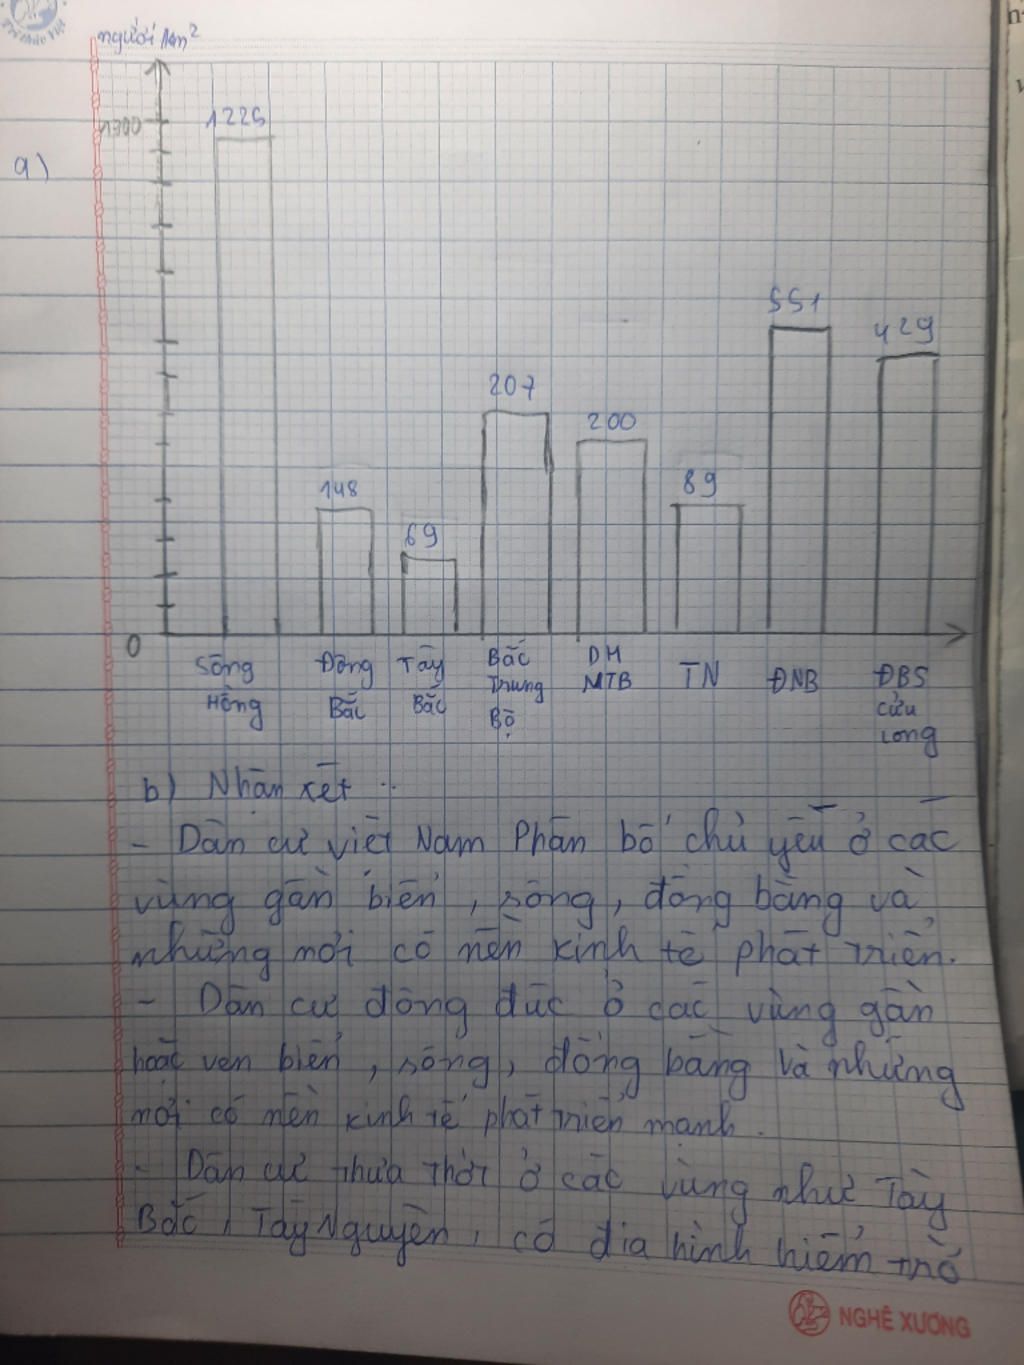 Trí thức Việt
người/km²
1300
1225
a)
551
429
207
200
148
89
69
0
Sông Hồng
Đông Bắc
Tây Bắc
Bắc Trung Bộ
DH MTB
TN
ĐNB
ĐBS Cửu Long
b) Nhận xét
- Dân cư việt Nam Phân bố chủ yếu ở các
vùng gần biển, sông, đồng bằng và
những nơi có nền kinh tế phát triển.
- Dân cư đông đúc ở các vùng gần
hoặc ven biển, sông, đồng bằng và những
nơi có nền kinh tế phát triển mạnh.
- Dân cư thưa thớt ở các vùng như Tây
Bắc, Tây Nguyên, có địa hình hiểm trở
NGHÊ XƯƠNG